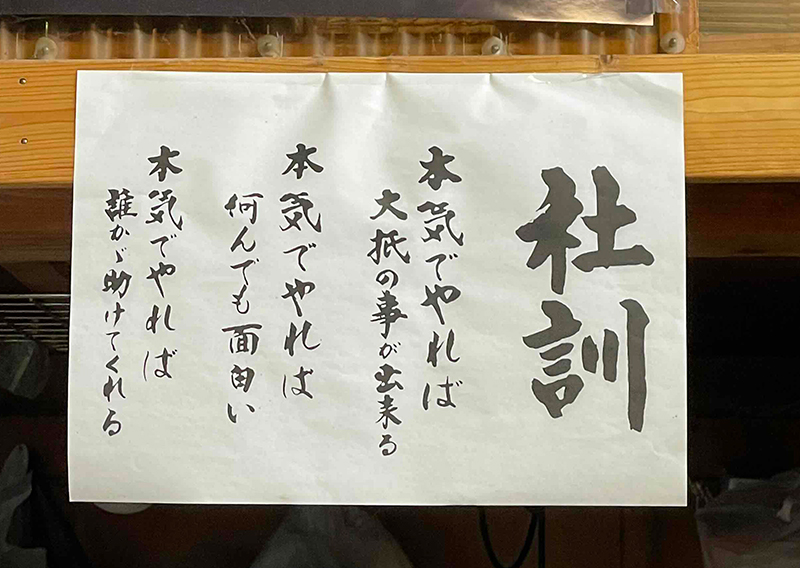 社訓
本気でやれば
大抵の事が出来る
本気でやれば
何んでも面白い
本気でやれば
誰かゞ助けてくれる